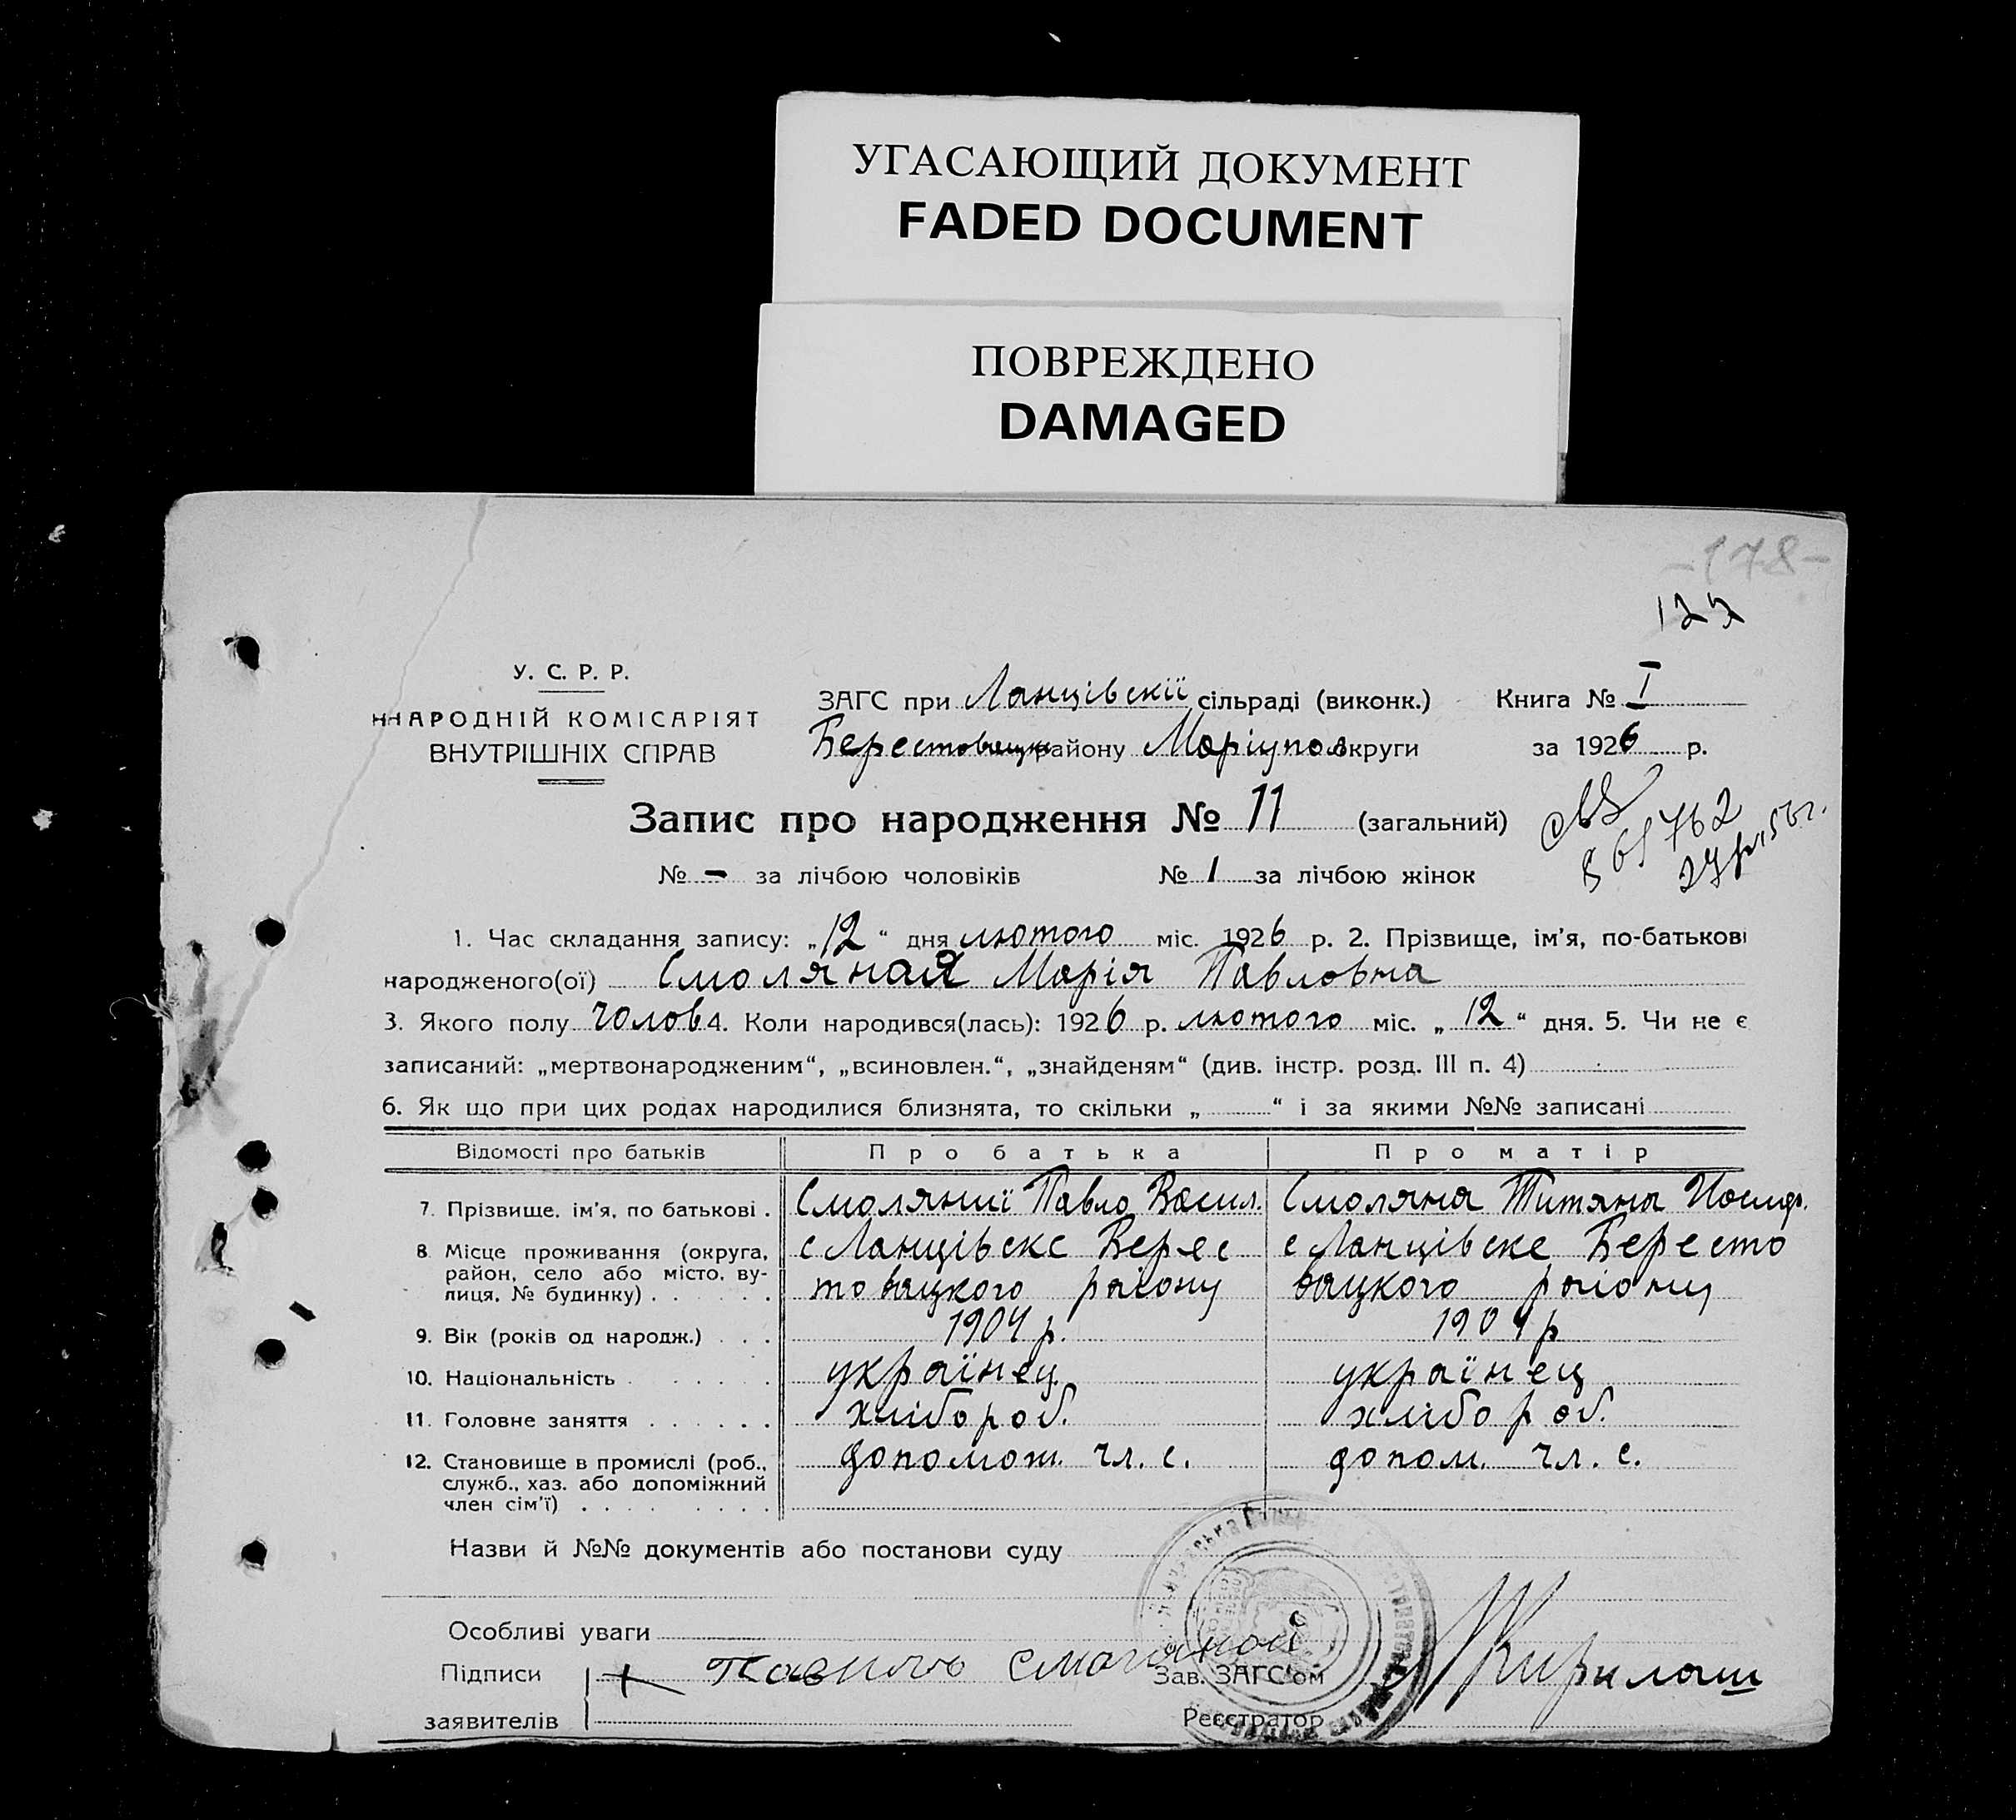 УГАСАЮЩИЙ ДОКУМЕНТ
FADED DOCUMENT
ПОВРЕЖДЕНО
DAMAGED
-178-
122
У. С. Р. Р.
НАРОДНІЙ КОМІСАРІЯТ
ВНУТРІШНІХ СПРАВ
ЗАГС при Ланцівскії сільраді (виконк.) Книга № I
Берестовецьк району Маріупол округи за 1926 р.
Запис про народження № 11 (загальний)
№ - за лічбою чоловіків № 1 за лічбою жінок
1. Час складання запису: „12“ дня лютого міс. 1926 р. 2. Прізвище, ім'я, по-батькові
народженого(ої) Смоляная Марія Павловна
3. Якого полу чолов 4. Коли народився(лась): 1926 р. лютого міс. „12“ дня. 5. Чи не є
записаний: „мертвонародженим“, „всиновлен.“, „знайденям“ (див. інстр. розд. III п. 4)
6. Як що при цих родах народилися близнята, то скільки „ “ і за якими №№ записані
Відомості про батьків Про батька Про матір
7. Прізвище, ім'я, по батькові . Смоляниї Павло Васил. Смоляна Титяна Иосиф.
8. Місце проживання (округа, с Ланцівске Берес с Ланцівске Бересто
район, село або місто, ву-
лиця, № будинку) . товацкого району вацкого району
9. Вік (років од народж.) . . . 1904 р. 1904 р
10. Національність . українец українец
11. Головне заняття . хлібороб. хлібороб.
12. Становище в промислі (роб., допомож. чл. с. допом. чл. с.
служб., хаз. або допоміжний
член сім'ї) .
Назви й №№ документів або постанови суду
Особливі уваги
Підписи + Смоляной Зав. ЗАГС'ом Кирилаш
заявителів Реєстратор